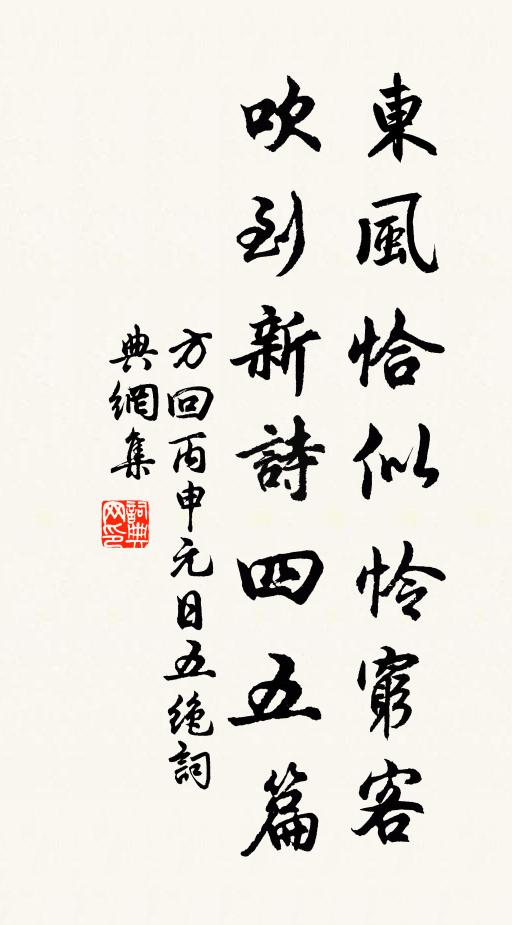 東風恰似怜窮客
吹到新詩四五篇
方回丙申元日五绝詞
典網集
詞典
网印